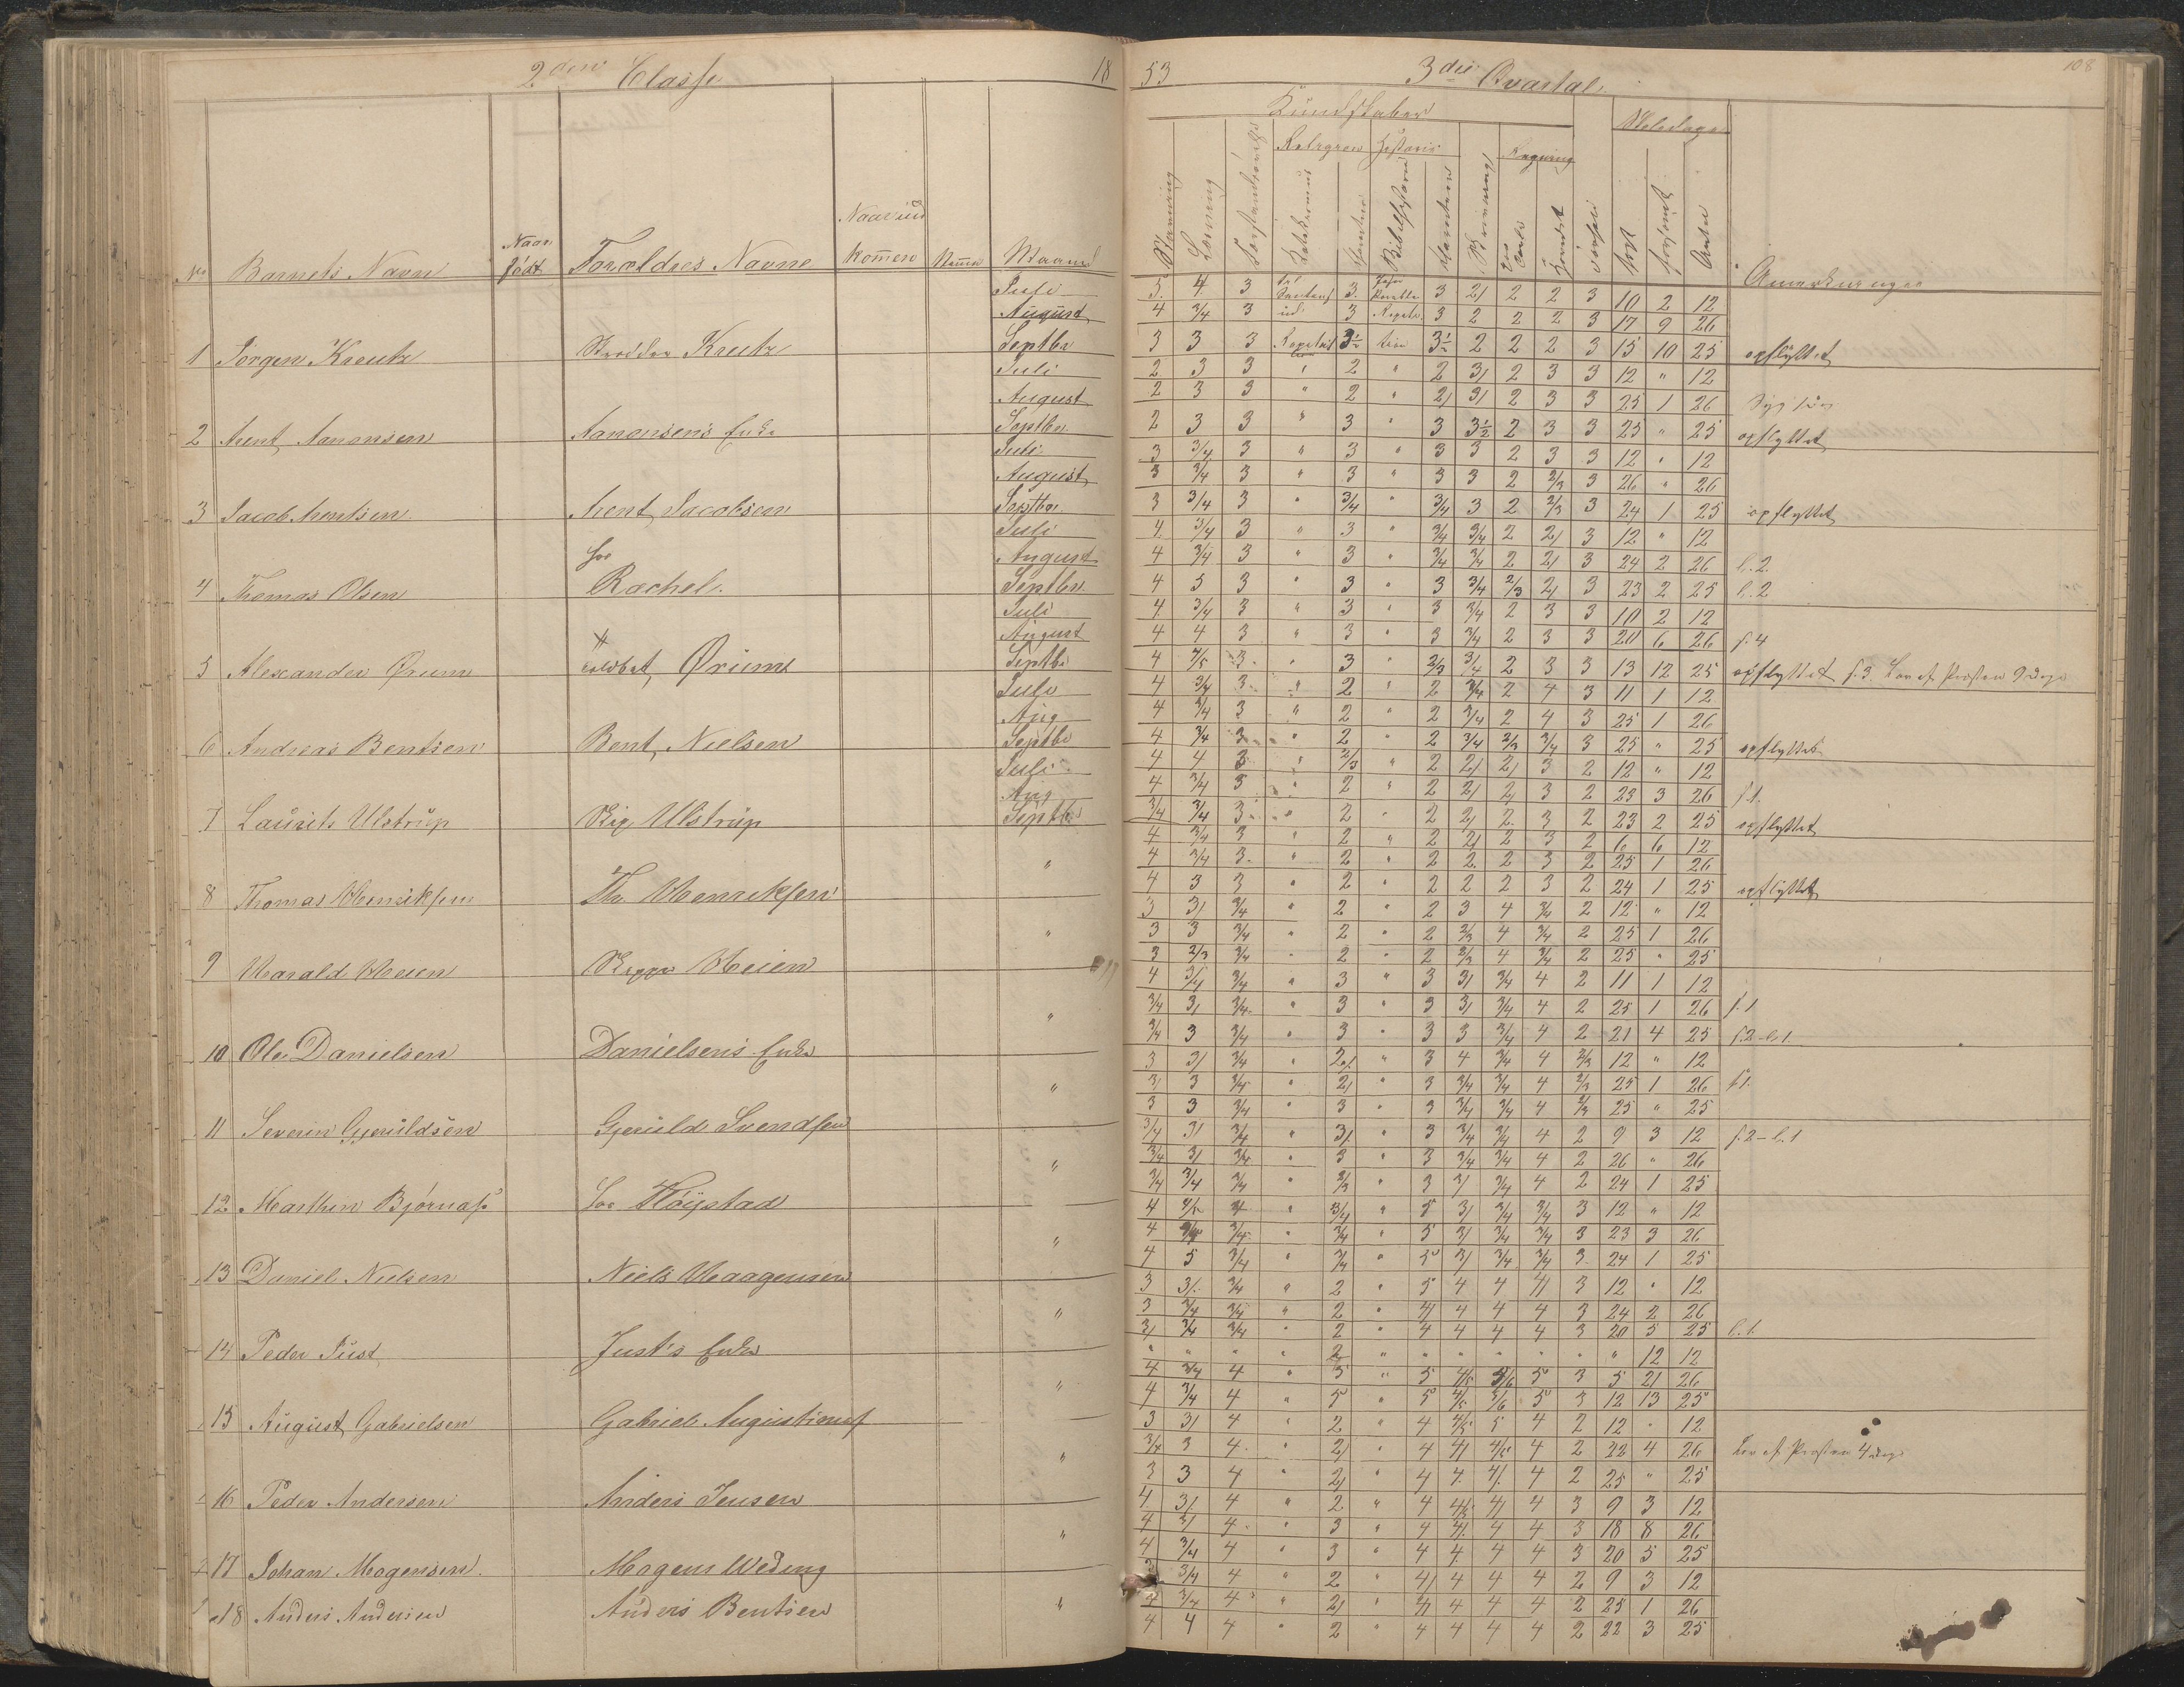 2den Classe 18
53 3die Qvartal. 108
Kundskaber
Religion Historie Regning
No Barnets Navn Naar født Forældres Navne Naar ind kommen Maaned
Anmærkninger
Juli 5. 4 3 3. 3 2/ 2 2 3 10 2 12
August 4 3/4 3 3 3 2 2 2 3 17 9 26
1 Jørgen Kreutz Kreutz Septbr 3 3 3 3½ 3½ 2 2 2 3 15 10 25 opflyttet
Juli 2 3 3 " 2 " 2 3/ 2 3 3 12 " 12
August 2 3 3 " 2 " 2/ 3/ 2 3 3 25 1 26
2 Arent Aanonsen Aanonsens Enke Septbr. 2 3 3 " 3 " 3 3½ 2 3 3 25 " 25 opflyttet
Juli 3 3/4 3 " 3 " 3 3 2 3 3 12 " 12
August 3 3/4 3 " 3 " 3 3 2 2/3 3 26 " 26
3 Jacob Arentsen. Arent Jacobsen Septbr. 3 3/4 3 " 3/4 3/4 3 2 2/3 3 24 1 25 opflyttet
Juli 4. 3/4 3 " 3 " 3/4 3/4 2 2/ 3 12 " 12
August 4 3/4 3 " 3 " 3/4 3/4 2 2/ 3 24 2 26 l. 2.
4 Thomas Olsen Rachel. Septbr. 4 5 3 " 3 " 3 3/4 2/3 2/ 3 23 2 25 l. 2
Juli 4. 3/4 3 " 3 " 3 3/4 2 3 3 10 2 12
August 4 4 3 " 3 " 3 3/4 2 3 3 20 6 26 f. 4
5 Alexander Ørum Ørums Septbr 4 4/5 3. " 3 2/3 3/4 2 3 3 13 12 25 opflyttet f. 3.
Juli 4 3/4 3. " 2 " 2 3/4 2 4 3 11 1 12
Aug 4 3/4 3 " 2 " 2 3/4 2 4 3 25 1 26
6 Andreas Bentsen Bent Nielsen Septbr 4 3/4 3 " 2 " 2 3/4 2/3 3/4 3 25 " 25 opflyttet
Juli 4 4 3 " 2/3 " 2 2/ 2/ 3 2 12 " 12
Aug 4 3/4 3 " 2 " 2 2/ 2/ 3 2 23 3 26 f. 1.
7 Laurits Ulstrup Ulstrup Septbr 3/4 3/4 3 " 2 " 2 2/ 2. 3 2 23 2 25 opflyttet
4 3/4 3 " 2 " 2 2/ 2 3 2 6 6 12
" 4 3/4 3. " 2 " 2 2 2 3 2 25 1 26
8 Thomas Henriksen Th. Henriksen 4 3 3 " 2 " 2 2 2 3 2 24 1 25 opflyttet
3 3/ 3/4 " 2 " 2 3 4 3/4 2 12 " 12
" 3 3 3/4 " 2 " 2 2/3 4 3/4 2 25 1 26
9 Harald Heien Heien 3 2/3 3/4 " 2 " 2 2/3 4 3/4 2 25 " 25
4 3/4 3/4 " 3 " 3 3/ 3/4 4 2 11 1 12
" 3/4 3/ 3/4 " 3 " 3 3/ 3/4 4 2 25 1 26 f. 1
10 Ole Danielsen Danielsens Enke 3/4 3 3/4 " 3 " 3 3 3/4 4 2 21 4 25 f. 2 - l. 1
3 3/ 3/4 " 2/ " 3 4 3/4 4 2/3 12 " 12
" 3/ 3 3/4 " 2/ " 3 3/4 3/4 4 2/3 25 1 26 f 1.
11 Severin Gjeruldsen Gjeruld Svendsen 3 3 3/4 " 3 " 3 3/4 3/4 4 2/3 25 " 25
3/4 3/ 3/4 " 3/ " 3 3/4 3/4 4 2 9 3 12 f. 2 - l. 1
" 3/4 3/ 3/4 " 3 " 3 3/4 3/4 4 2 26 " 26
12 Marthin Bjørnas. Høystad 3/4 3/4 3/4 " 2/3 " 3 3/ 3/4 4 2 24 1 25
4 4/5 4 " 3/4 " 5 3/ 3/4 3/4 3 12 " 12
" 4 3/4 " 3/4 " 5 3/ 3/4 3/4 3 23 3 26
13 Daniel Nielsen Niels Haagensen 4 5 3/4 " 3/4 " 5 3/ 3/4 3/4 3. 24 1 25
3 3/. 3/4 " 2 " 5 4 4 4/ 3 12 " 12
" 3 3/4 3/4 " 2 " 4/ 4 4 4 3 24 2 26
14 Peder Just Just's Enke 3/ 3/4 3/4 " 2 " 4 4 4 4 3 20 5 25 l. 1.
" " " " 2 " " " " " " " 12 12
" 4 3/4 4 " 5 " 5 4/5 5/6 5 3 5 21 26
15 August Gabrielsen Gabriel Augustiens. 4 3/4 4 " 5 " 5 4/5 5/6 5 3 12 13 25
3 3/ 4 " 2 " 4 4/5 5 4 2 12 " 12
" 3/4 3 4. " 2/ " 4 4/ 4/5 4 2 22 4 26
16 Peder Andersen Anders Jensen 3 3 4 " 2/ " 4 4. 4/. 4 2 25 " 25
4 3/. 4 " 2 " 4 4/5 4/ 4 3 9 3 12
" 4 3/ 4. " 3 " 4 4/. 4 4 3 18 8 26
17 Johan Mogensen. Mogens Weding 4 3/4 4 " 3 " 4 4. 4 4 3 20 5 25
3/4 4 " 2 " 4/ 4 4 4 2 9 3 12
" 4 3/4 4 " 2/ " 4/ 4 4 4 2 25 1 26
18 Anders Andersen Anders Bentsen 4 4 4 " 2 " 4 4 4 4 2 22 3 25